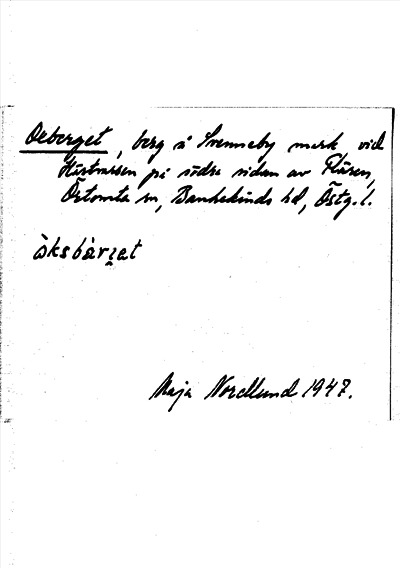 Oxberget, berg å Svenneby mark vid
på södra sidan av Flären,
Östomta sn, Bankekinds hd, Östg. l.
òksbàrʒ̣et
Maja Nordlund 1947.